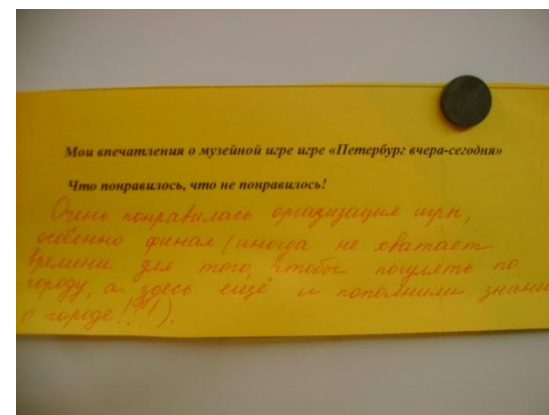 Мои впечатления о музейной игре игре «Петербург вчера-сегодня»
Что понравилось, что не понравилось!
Очень понравилась организация игры,
особенно финал (иногда не хватает
времени для того, чтобы погулять по
городу, а здесь ещё и пополнили знани
о городе!!!).